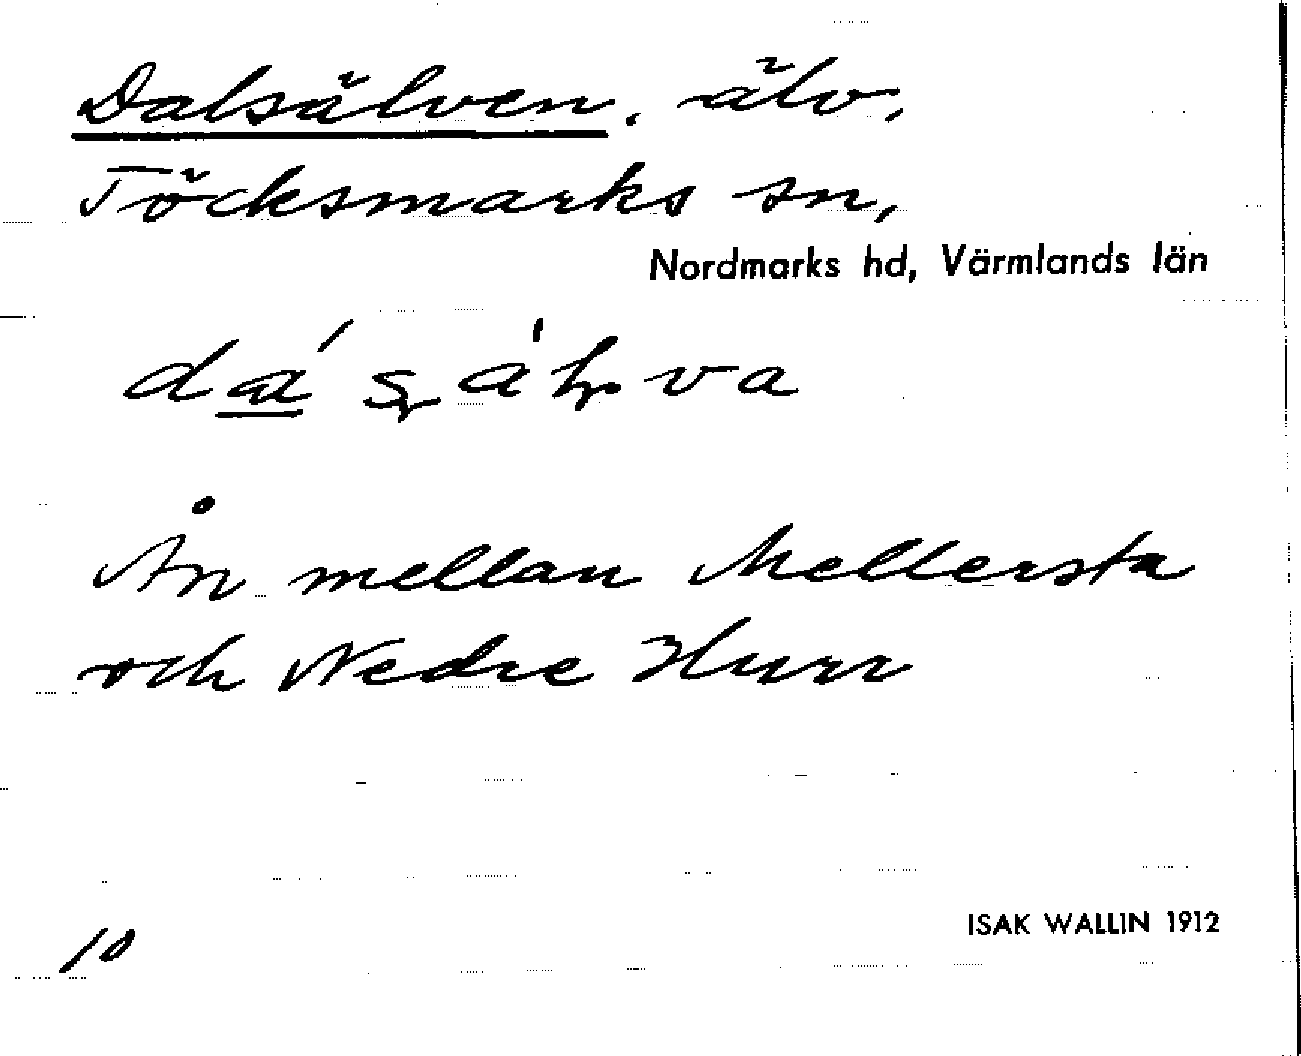 Dalsälven, älv,
Töcksmarks sn,
Nordmarks hd, Värmlands län
Ån mellan Mellersta
och Nedre Hurr
ISAK WALLIN 1912
10